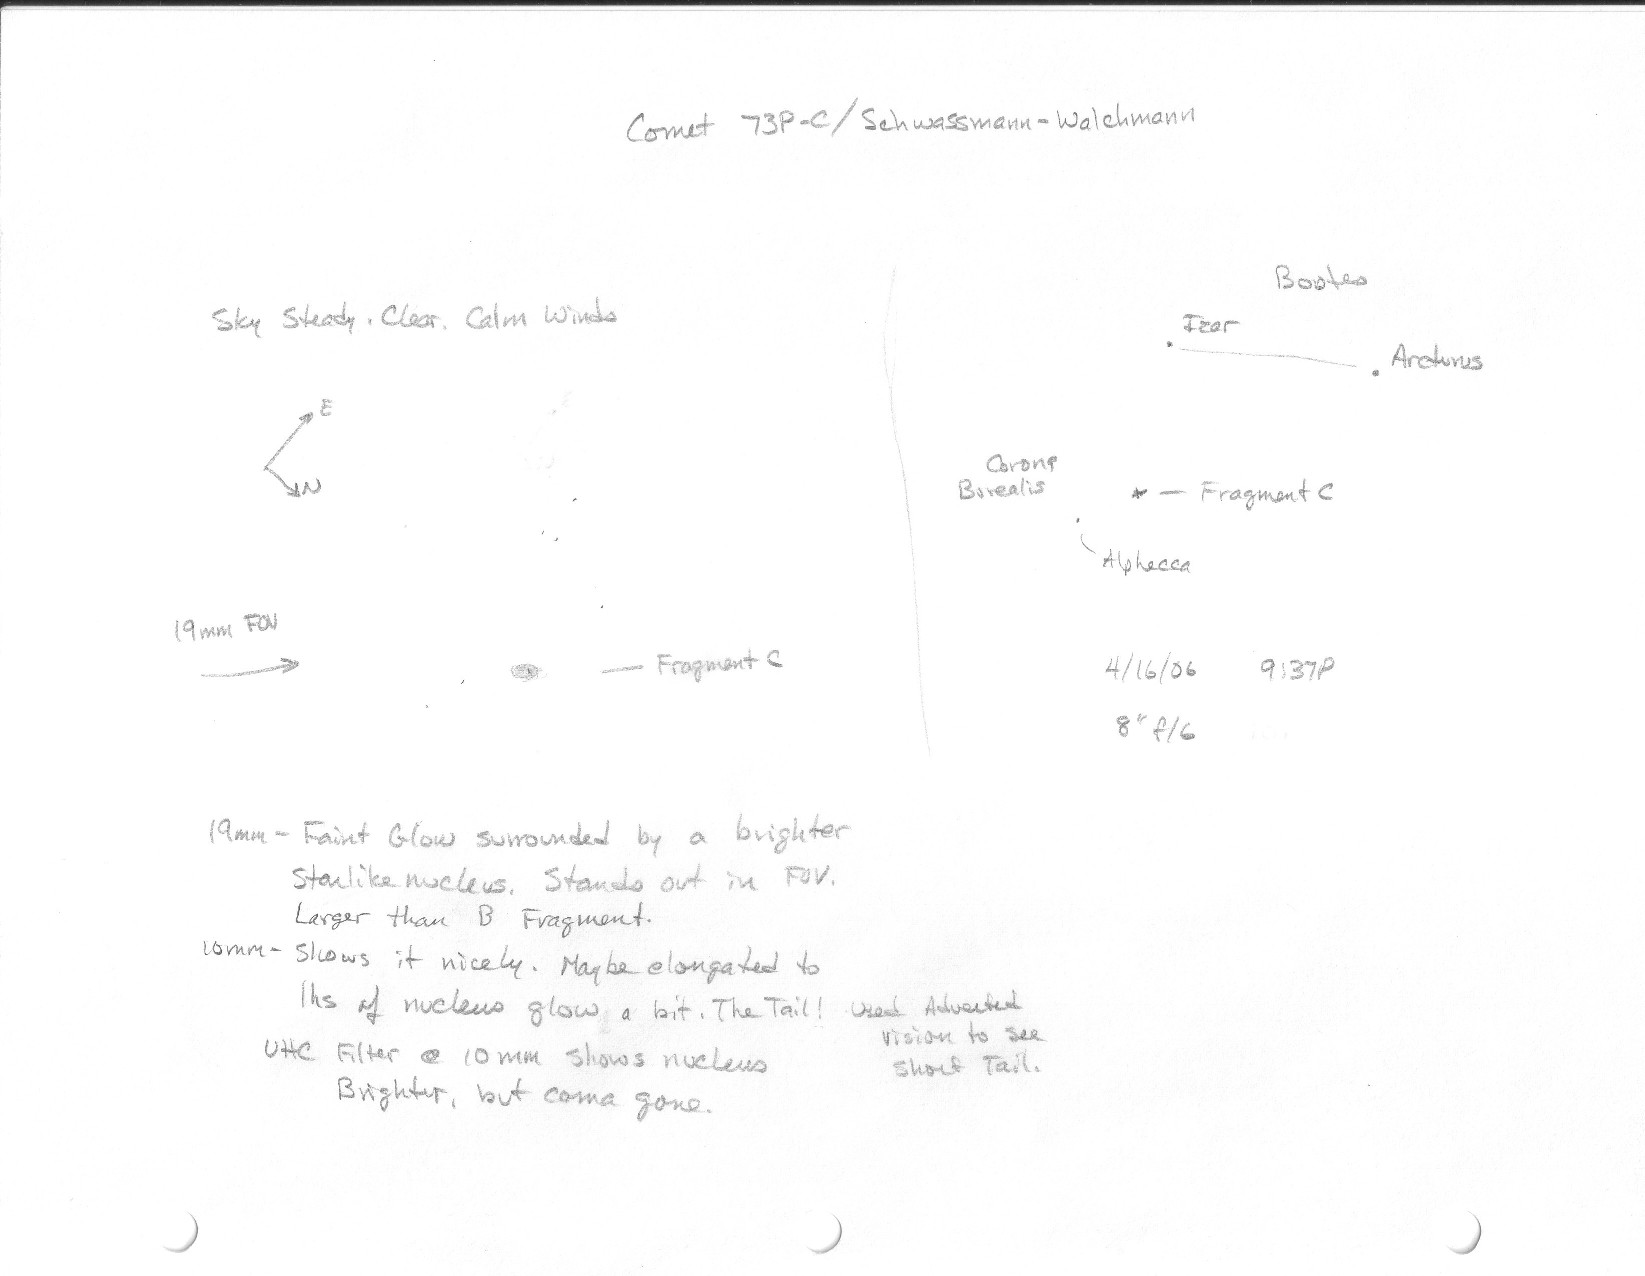 Comet 73P-C/Schwassmann-Walchmann
Sky Steady. Clear. Calm Winds
E
N
19mm FOV
Fragment C
Bootes
Izar
Arcturus
Corona
Borealis
Fragment C
Alphecca
4/16/06 9:37P
8" f/6
19mm - Faint Glow surrounded by a brighter
Starlike nucleus. Stands out in FOV.
Larger than B Fragment.
10mm - Shows it nicely. Maybe elongated to
lhs of nucleus glow a bit. The Tail! Used Adverted
vision to see
short Tail.
UHC Filter @ 10mm shows nucleus
Brighter, but coma gone.